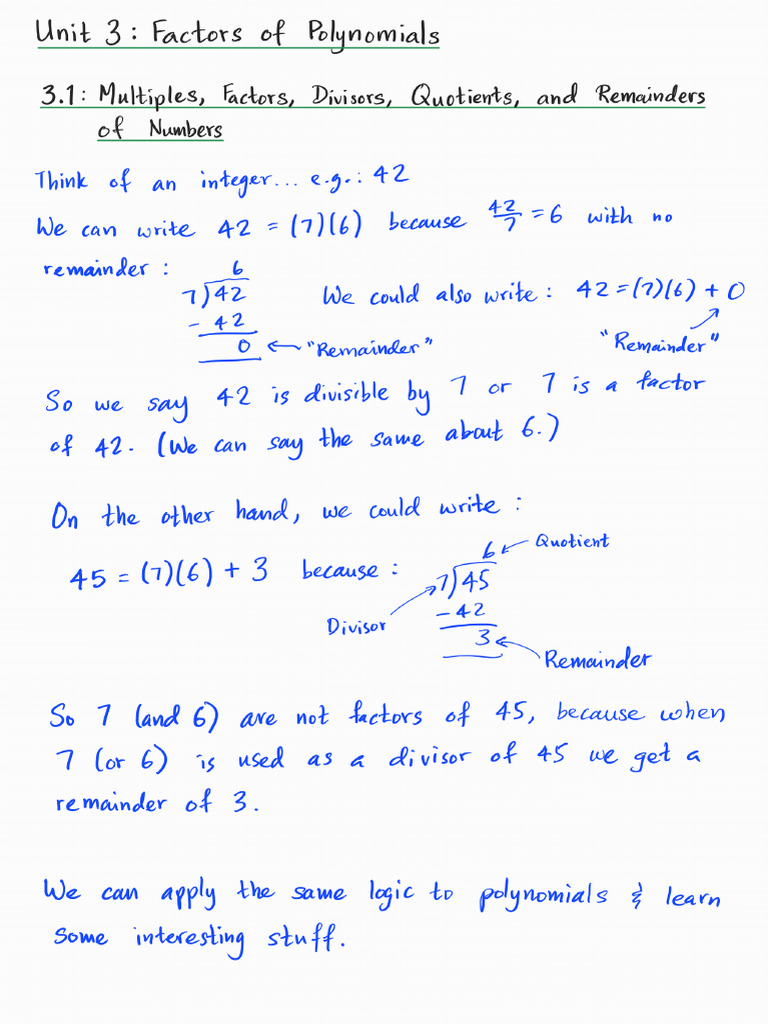 Unit 3: Factors of Polynomials
3.1: Multiples, Factors, Divisors, Quotients, and Remainders
of Numbers
Think of an integer... e.g.: 42
We can write 42 = (7)(6) because 42/7 = 6 with no
remainder:
6
7)42
- 42
0 ← "Remainder"
We could also write: 42 = (7)(6) + 0
"Remainder"
So we say 42 is divisible by 7 or 7 is a factor
of 42. (We can say the same about 6.)
On the other hand, we could write:
45 = (7)(6) + 3 because:
6 ← Quotient
7)45
Divisor
- 42
3 ← Remainder
So 7 (and 6) are not factors of 45, because when
7 (or 6) is used as a divisor of 45 we get a
remainder of 3.
We can apply the same logic to polynomials & learn
some interesting stuff.